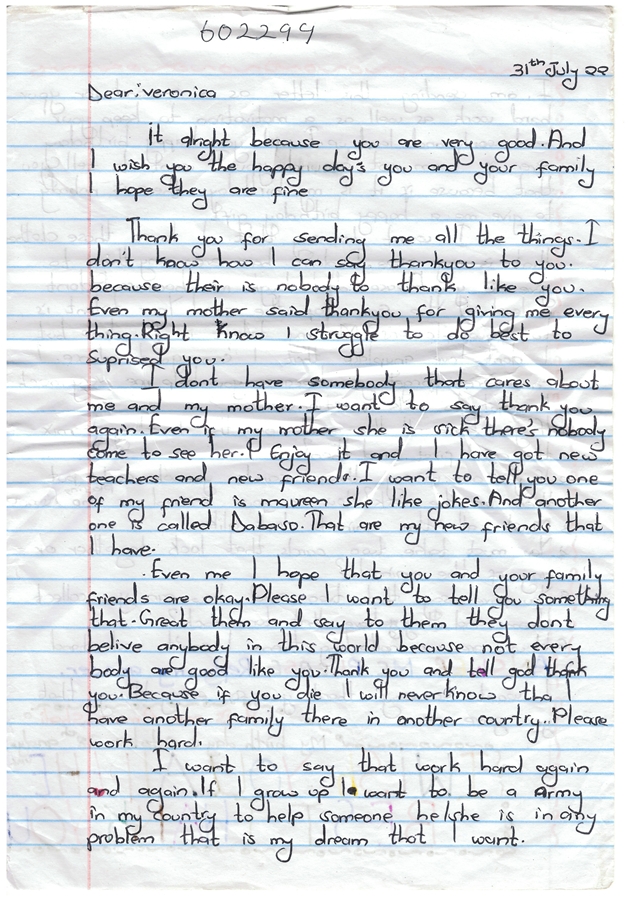 602299
31th July 22
Dear: veronica
it alright because you are very good. And
I wish you the happy day's you and your family
I hope they are fine
Thank you for sending me all the things. I
don't know how I can say thankyou to you.
because their is nobody to thank like you.
Even my mother said thankyou for giving me every
thing. Right know I struggle to do best to
Suprised you.
I dont have somebody that cares about
me and my mother. I want to say thank you
again. Even if my mother she is sick there's nobody
come to see her. I Enjoy it and I have got new
teachers and new friends. I want to tell you one
of my friend is maureen she like jokes. And another
one is called Dabaso. That are my new friends that
I have.
. Even me I hope that you and your family
friends are okay. Please I want to tell you something
that. Great them and say to them they dont
belive anybody in this world because not every
body are good like you. Thank you and tell god thank
you. Because if you die I will never know tha I
have another family there in another country.. Please
work hard.
I want to say that work hard again
and again. If I grow up I want to be a Army
in my country to help someone he/she is in any
problem that is my dream that I want.